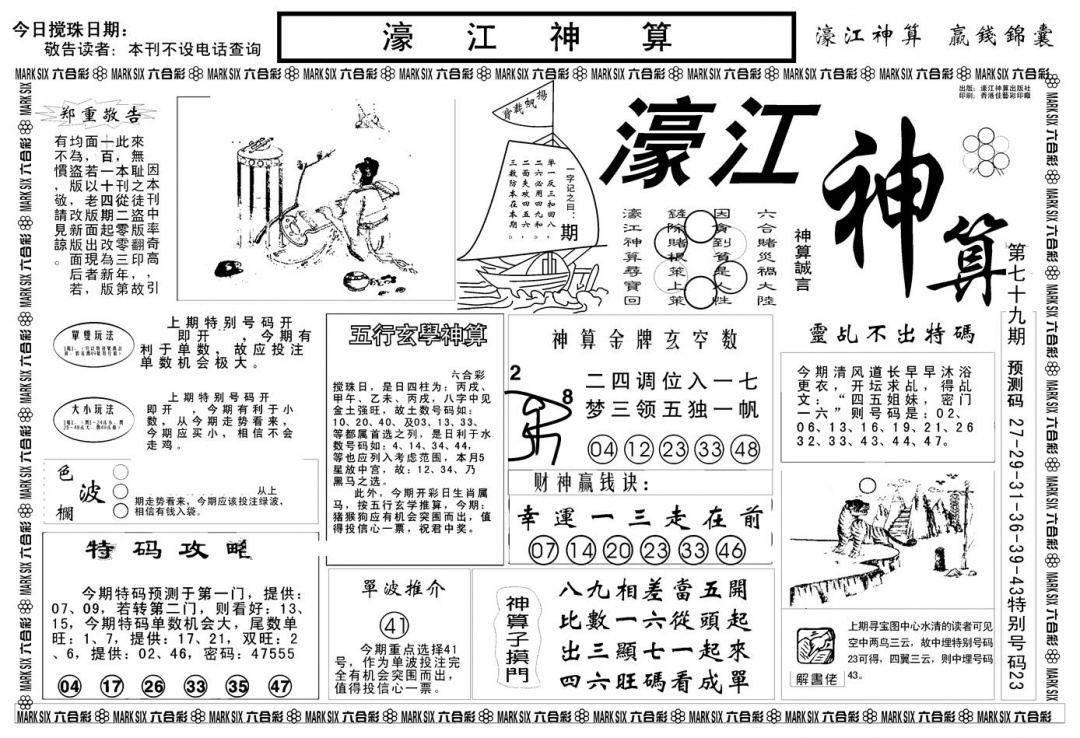 今日搅珠日期：
敬告读者：本刊不设电话查询
濠江神算
濠江神算 赢錢錦囊
MARK SIX 六合彩 MARK SIX 六合彩 MARK SIX 六合彩 MARK SIX 六合彩 MARK SIX 六合彩 MARK SIX 六合彩 MARK SIX 六合彩 MARK SIX 六合彩 MARK SIX 六合彩 MARK SIX 六合彩 MARK SIX 六合彩
出版：濠江神算出版社
印刷：香港佳藝彩印廠
郑重敬告
因本中奇高引
來無耻之徒盜翻印故
此，本刊從二零三年第
十百一十四期起改為新版
面，若以老版面出現后若
均為盜版，敬請見諒。
有不慣
揚帆載寶
一字记之曰：期
单一反三和四八
二六必用四九和
二面失攻四五六
三数防本在本期
濠江
神算
六合賭災禍大陸
因貪到貧是人性
鏟除賭根策上策
濠江神算尋寶回
神算誠言
第七十九期
预测码 27-29-31-36-39-43特别号码23
單雙玩法
上期特别号码开
即开 ，今期有
利于单数，故应投注
单数机会极大。
大小玩法
上期特别号码开
即开 ，今期有利于小
数，从今期走势看来，
今期应买小，相信不会
走鸡。
色波欄
从上
期走势看来，今期应该投注绿波，
相信有钱入袋。
特码攻略
今期特码预测于第一门，提供：
07、09，若转第二门，则看好：13、
15，今期特码单数机会大，尾数单
旺：1、7，提供：17、21，双旺：2
、6，提供：02、46，密码：47555
04 17 26 33 35 47
五行玄學神算
六合彩
搅珠日，是日四柱为：丙戌、
甲午、乙未、丙戌，八字中见
金土强旺，故土数号码如：
10、20、40、及03、13、33、
等都属首选之列，是日利于水
数号码如：4、14、34、44，
等也应列入考虑范围，本月5
星放中宫，故：12、34、乃
黑马之选。
此外，今期开彩日生肖属
马，按五行玄学推算，今期：
猪猴狗应有机会突围而出，值
得投信心一票，祝君中奖。
神算金牌玄空数
2
8
二四调位入一七
梦三领五独一帆
04 12 23 33 48
财神赢钱诀：
幸運一三走在前
07 14 20 23 33 46
靈乩不出特碼
今期清风道长早早沐浴
更衣，开坛求乩，得乩
文：“四五姐妹，密门
一六”则号码是：02、
06、13、16、19、21、26
32、33、43、44、47。
單波推介
41
今期重点选择41
号，作为单波投注完
全有机会突围而出，
值得投信心一票。
神算子摸門
八九相差當五開
比數一六從頭起
出三顯七一起來
四六旺碼看成單
解畫佬
上期寻宝图中心水清的读者可见
空中两鸟三云，故中埋特别号码
23可得，四翼三云，则中埋号码
43。
MARK SIX 六合彩 MARK SIX 六合彩 MARK SIX 六合彩 MARK SIX 六合彩 MARK SIX 六合彩 MARK SIX 六合彩 MARK SIX 六合彩 MARK SIX 六合彩 MARK SIX 六合彩 MARK SIX 六合彩 MARK SIX 六合彩